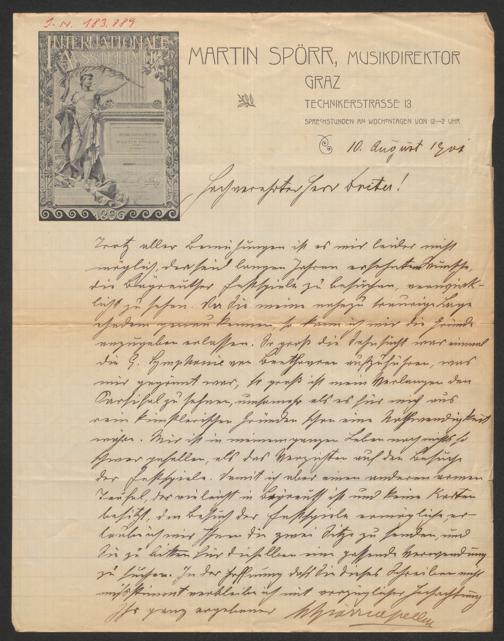 I. N. 183.889
INTERNATIONALE
AUSSTELLUNG
1896
MARTIN SPÖRR, MUSIKDIREKTOR
GRAZ
TECHNIKERSTRASSE 13
SPRECHSTUNDEN AN WOCHENTAGEN VON 12–2 UHR
10. August 1901
Hochverehrter Herr
Trotz aller Bemühungen ist es mir leider nicht
möglich, den seit langen Jahren ersehnten Wunsch,
die Bayreuther Festspiele zu besuchen, verwirk-
licht zu sehen. Da Sie meine nahezu traurige Lage
genau kennen, so kann ich mir die Gründe
anzugeben erlassen. So groß die Sehnsucht war einmal
die 9. Symphonie von Beethoven aufzuführen, was
mir gegönnt war, so groß ist mein Verlangen den
Parsifal zu hören, umsomehr als es für mich aus
rein künstlerischen Gründen schon eine Nothwendigkeit
wäre. Mir ist in meinem ganzen Leben noch nichts so
schwer gefallen, als das Verzichten auf den Besuch
der Festspiele. Damit ich aber einem anderen armen
Teufel, der vielleicht in Bayreuth ist und keine Karten
besitzt, den Besuch der Festspiele ermögliche, er-
laube ich mir Ihnen die zwei Sitze zu senden, und
Sie zu bitten, für dieselben eine passende Verwendung
zu suchen. In der Hoffnung daß Sie dieses Schreiben nicht
verbleibe ich mit vorzüglicher Hochachtung
Ihr ganz ergebener